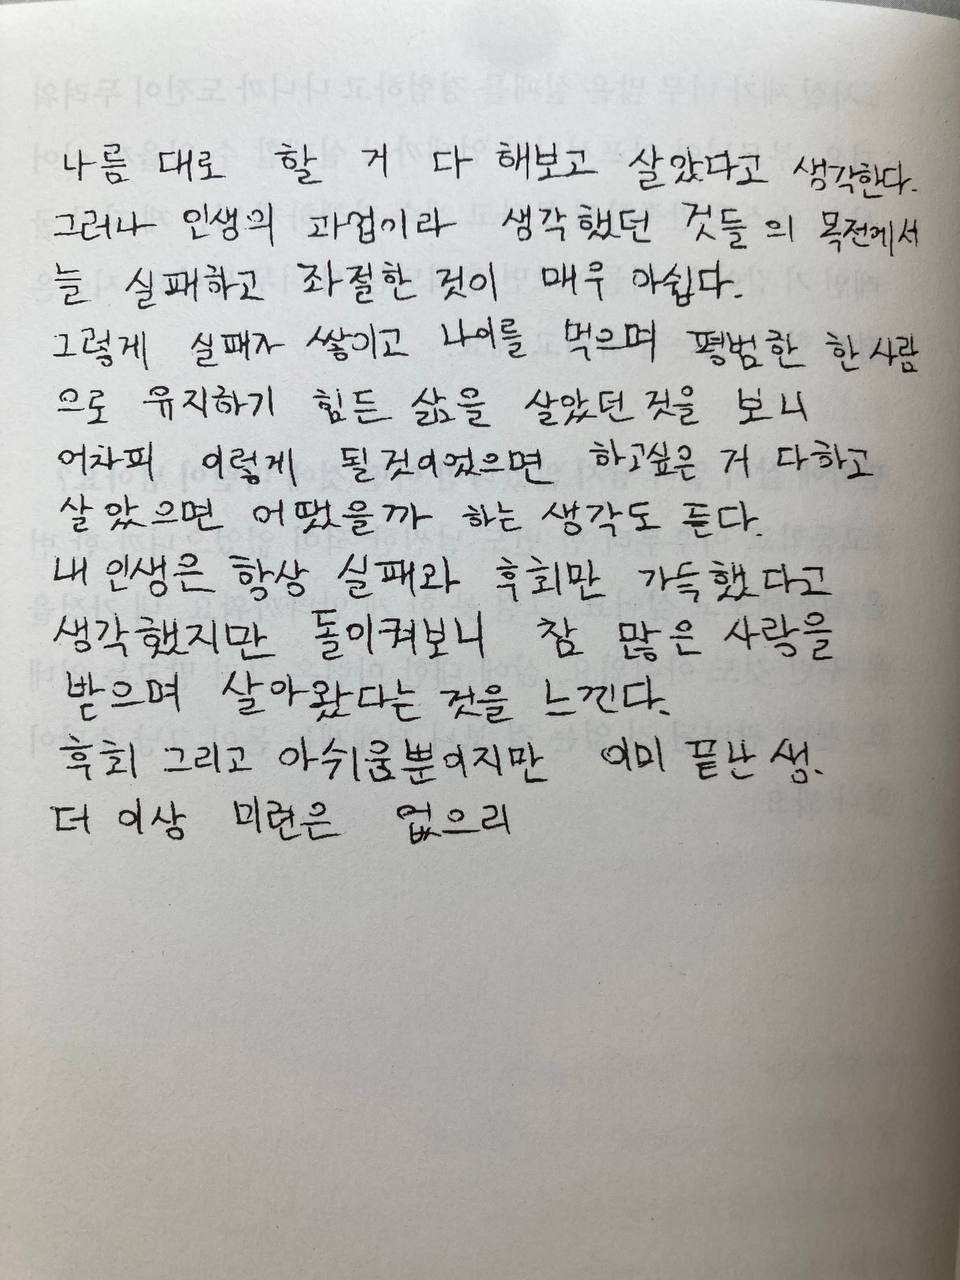 나름 대로 할 거 다 해보고 살았다고 생각한다.
그러나 인생의 과업이라 생각했던 것들의 목전에서
늘 실패하고 좌절한 것이 매우 아쉽다.
그렇게 실패자 쌓이고 나이를 먹으며 평범한 한 사람
으로 유지하기 힘든 삶을 살았던 것을 보니
어차피 이렇게 될것이었으면 하고싶은 거 다하고
살았으면 어땠을까 하는 생각도 든다.
내 인생은 항상 실패와 후회만 가득했다고
생각했지만 돌이켜보니 참 많은 사랑을
받으며 살아왔다는 것을 느낀다.
후회 그리고 아쉬움뿐이지만 이미 끝난 생.
더 이상 미련은 없으리